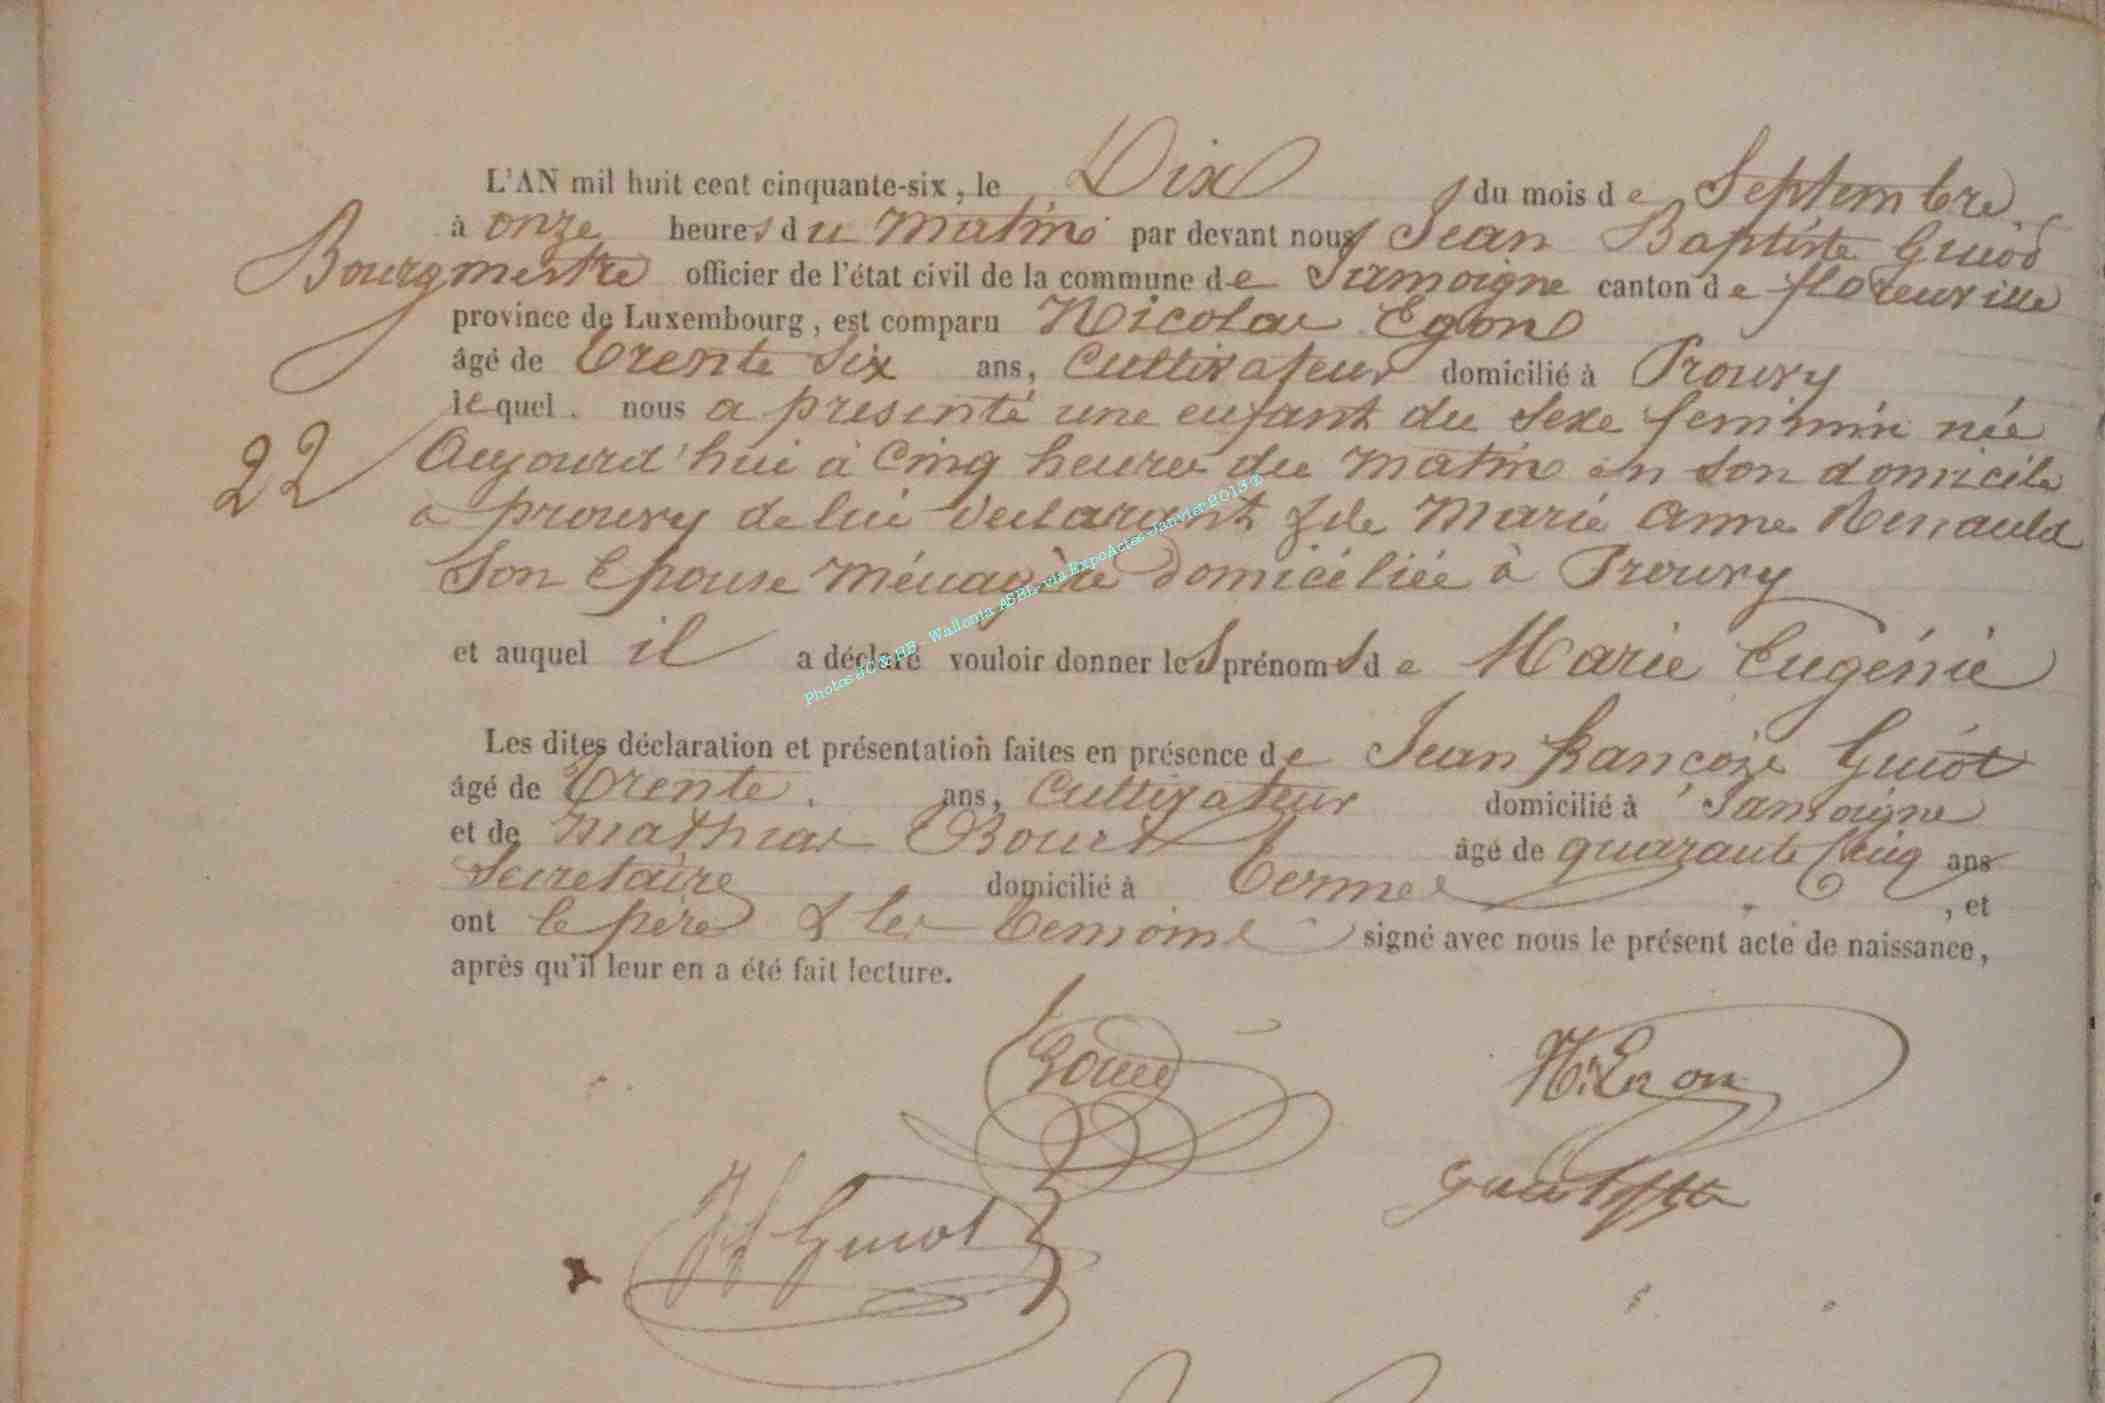 L'AN mil huit cent cinquante-six, le Dix du mois de Septembre
à onze heures du matin par devant nous Jean Baptiste Guiot
Bourgmestre officier de l'état civil de la commune de canton de florenville
province de Luxembourg, est comparu Nicolas Egon
âgé de trente Six ans, Cultivateur domicilié à Prouvy
lequel nous a présenté une enfant du Sexe feminin née
22 Aujourd'hui à Cinq heures du matin en son domicile
à prouvy de lui déclarant & de Marie Anne Renauld
Son Epouse ménagère domiciliée à Prouvy
et auquel il a déclaré vouloir donner les prénoms de Marie Eugénie
Les dites déclaration et présentation faites en présence de Jean françois Guiot
âgé de trente ans, Cultivateur domicilié à Jamoigne
et de Mathias âgé de quarante Cinq ans
Secretaire domicilié à termes, et
ont le père & les temoins signé avec nous le présent acte de naissance,
après qu'il leur en a été fait lecture.
N. Egon
Guiot
J f Guiot
Photos JC & HB - Wallonia ASBL via ExpoActes Janvier 2013 ©